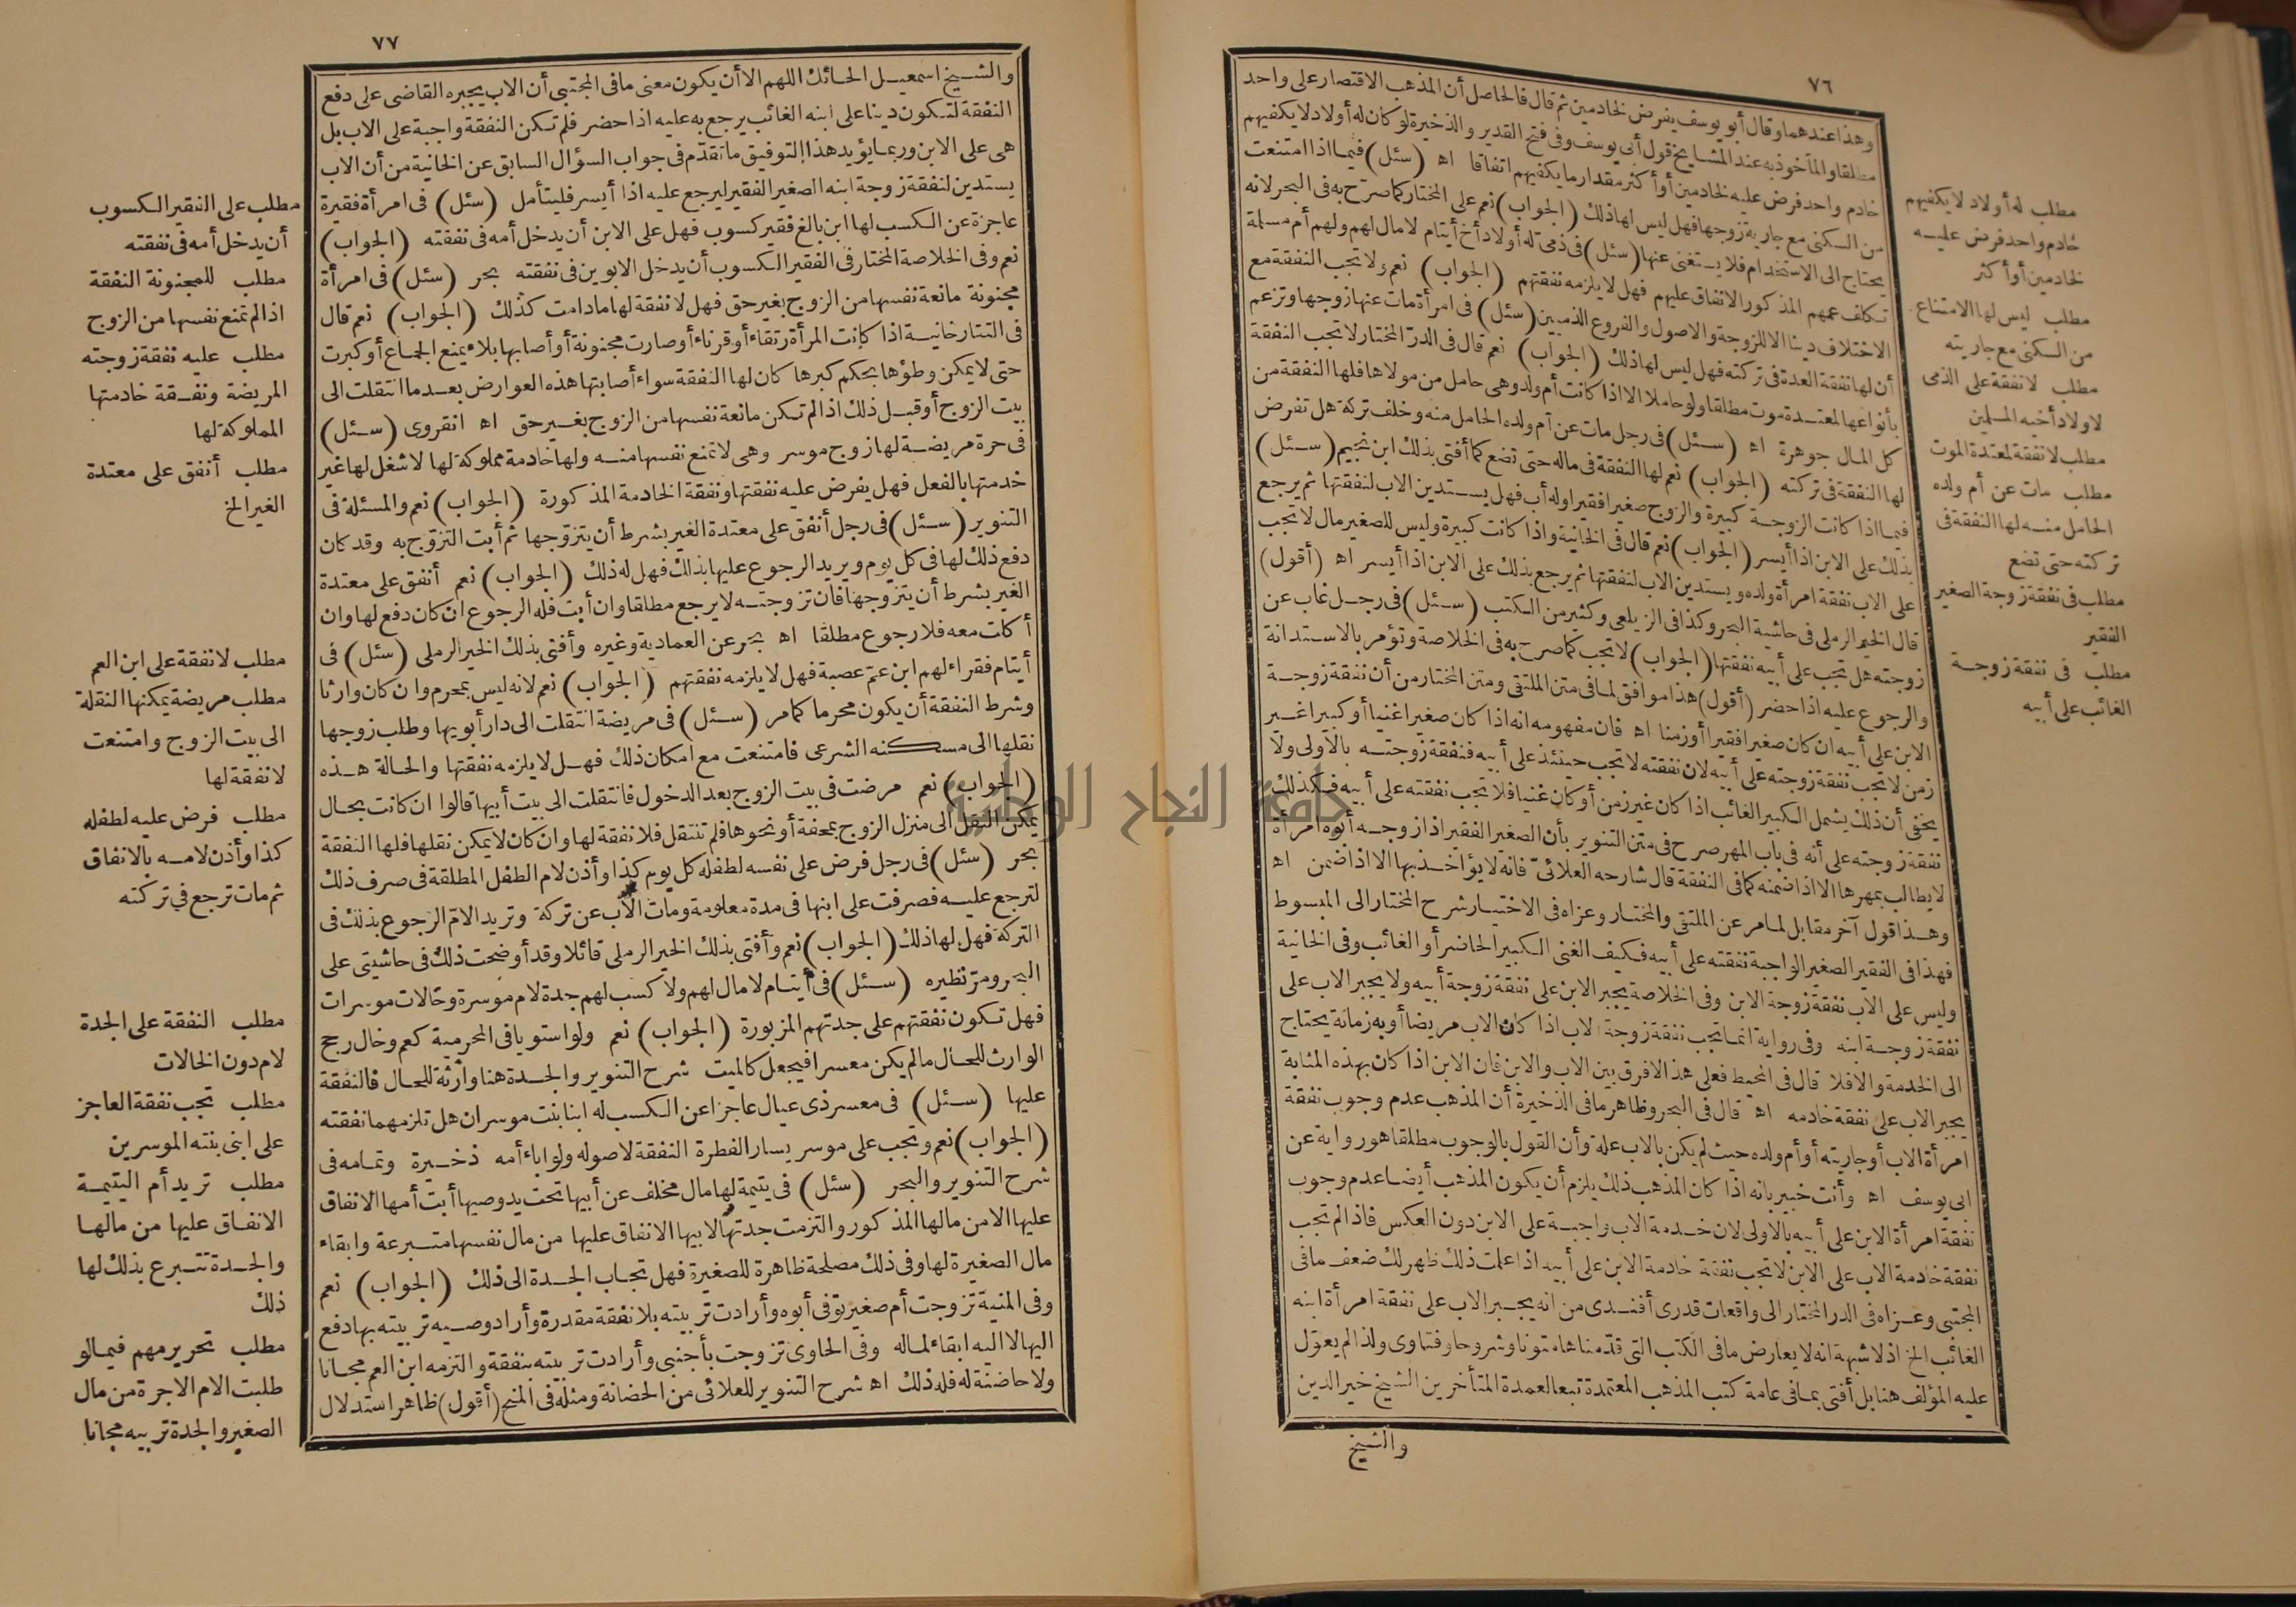 ٧٦
وهذا عندهما وقال أبو يوسف يفرض لخادمين ثم قال فالحاصل أن المذهب الاقتصار على واحد
مطلقا والمأخوذ به عند المشايخ قول أبى يوسف وفى فتح القدير والذخيرة لو كان له أولاد لا يكفيهم
خادم واحد فرض عليه لخادمين أو أكثر مقدار ما يكفيهم اتفاقا اه (سئل) فيما اذا امتنعت
من السكنى مع جارية زوجها فهل ليس لها ذلك (الجواب) نعم على المختار كما صرح به فى البحر لانه
يحتاج الى الاستخدام فلا يستغنى عنها (سئل) فى ذمى له أولاد أخ أيتام لا مال لهم ولهم أم مسلمة
تكلف عمهم المذكور الانفاق عليهم فهل لا يلزمه نفقتهم (الجواب) نعم ولا يجب النفقة مع
الاختلاف دينا الا للزوجة والاصول والفروع الذميين (سئل) فى امرأة مات عنها زوجها وتزعم
أن لها نفقة العدة فى تركته فهل ليس لها ذلك (الجواب) نعم قال فى الدر المختار لا تجب النفقة
بأنواعها لمعتدة موت مطلقا ولو حاملا الا اذا كانت أم ولد وهى حامل من مولاها فلها النفقة من
كل المال جوهرة اه (سئل) فى رجل مات عن أم ولده الحامل منه وخلف تركة هل تفرض
لها النفقة فى تركته (الجواب) نعم لها النفقة فى ماله حتى تضع كما أفتى بذلك ابن نجيم (سئل)
فيما اذا كانت الزوجة كبيرة والزوج صغيرا فقيرا وله أب فهل يستدين الاب لنفقتها ثم يرجع
بذلك على الابن اذا أيسر (الجواب) نعم قال فى الخانية واذا كانت كبيرة وليس للصغير مال لا تجب
على الاب نفقة امرأة ولده ويستدين الاب لنفقتها ثم يرجع بذلك على الابن اذا أيسر اه (أقول)
قال الخير الرملى فى حاشية البحر وكذا فى الزيلعى وكثير من الكتب (سئل) فى رجل غاب عن
زوجته هل تجب على أبيه نفقتها (الجواب) لا تجب كما صرح به فى الخلاصة وتؤمر بالاستدانة
والرجوع عليه اذا حضر (أقول) هذا موافق لما فى متن الملتقى ومتن المختار من أن نفقة زوجة
الابن على أبيه ان كان صغيرا فقيرا أو زمنا اه فان مفهومه انه اذا كان صغيرا غنيا أو كبيرا غير
زمن لا تجب نفقة زوجته على أبيه لان نفقته لا تجب حينئذ على أبيه فنفقة زوجته بالاولى ولا
يخفى أن ذلك يشمل الكبير الغائب اذا كان غير زمن أو كان غنيا فلا تجب نفقته على أبيه فكذلك
نفقة زوجته على أنه فى باب المهر صرح فى متن التنوير بأن الصغير الفقير اذا زوجه أبوه امرأة
لا يطالب بمهرها الا اذا ضمنه كما فى النفقة قال شارحه العلائى فانه لا يؤاخذ بها الا اذا ضمن اه
وهذا قول آخر مقابل لما مر عن الملتقى والمختار وعزاه فى الاختيار شرح المختار الى المبسوط
فهذا فى الفقير الصغير الواجبة نفقته على أبيه فكيف الغنى الكبير الحاضر أو الغائب وفى الخانية
وليس على الاب نفقة زوجة الابن وفى الخلاصة يجبر الابن على نفقة زوجة أبيه ولا يجبر الاب على
نفقة زوجة ابنه وفى رواية انما تجب نفقة زوجة الاب اذا كان الاب مريضا أو به زمانة يحتاج
الى الخدمة والا فلا قال فى المحيط فعلى هذا لا فرق بين الاب والابن فان الابن اذا كان بهذه المثابة
يجبر الاب على نفقة خادمه اه قال فى البحر وظاهر ما فى الذخيرة أن المذهب عدم وجوب نفقة
امرأة الاب أو جاريته أو أم ولده حيث لم يكن بالاب علة وأن القول بالوجوب مطلقا هو رواية عن
ابى يوسف اه وأنت خبير بانه اذا كان المذهب ذلك يلزم أن يكون المذهب أيضا عدم وجوب
نفقة امرأة الابن على أبيه بالاولى لان خدمة الاب واجبة على الابن دون العكس فاذا لم تجب
نفقة خادمة الاب على الابن لا تجب نفقة خادمة الابن على أبيه اذا علمت ذلك ظهر لك ضعف ما فى
المجتبى وعزاه فى الدر المختار الى واقعات قدرى أفندى من انه يجبر الاب على نفقة امرأة ابنه
الغائب الخ اذ لا شبهة انه لا يعارض ما فى الكتب التى قدمناها متونا وشروحا وفتاوى ولذا لم يعول
عليه المؤلف هنا بل أفتى بما فى عامة كتب المذهب المعتمدة تبعا لعمدة المتأخرين الشيخ خير الدين
والشيخ
مطلب له أولاد لا يكفيهم
خادم واحد فرض عليه
لخادمين أو أكثر
مطلب ليس لها الامتناع
من السكنى مع جاريته
مطلب لا نفقة على الذمى
لاولاد أخيه المسلمين
مطلب لا نفقة لمعتدة الموت
مطلب مات عن أم ولده
الحامل منه لها النفقة فى
تركته حتى تضع
مطلب فى نفقة زوجة الصغير
الفقير
مطلب فى نفقة زوجة
الغائب على أبيه
٧٧
والشيخ اسمعيل الحائك اللهم الا أن يكون معنى ما فى المجتبى أن الاب يجبره القاضى على دفع
النفقة لتكون دينا على ابنه الغائب يرجع به عليه اذا حضر فلم تكن النفقة واجبة على الاب بل
هى على الابن وربما يؤيد هذا التوفيق ما تقدم فى جواب السؤال السابق عن الخانية من أن الاب
يستدين لنفقة زوجة ابنه الصغير الفقير ليرجع عليه اذا أيسر فليتأمل (سئل) فى امرأة فقيرة
عاجزة عن الكسب لها ابن بالغ فقير كسوب فهل على الابن أن يدخل أمه فى نفقته (الجواب)
نعم وفى الخلاصة المختار فى الفقير الكسوب أن يدخل الابوين فى نفقته بحر (سئل) فى امرأة
مجنونة مانعة نفسها من الزوج بغير حق فهل لا نفقة لها ما دامت كذلك (الجواب) نعم قال
فى التتارخانية اذا كانت المرأة رتقاء أو قرناء أو صارت مجنونة أو أصابها بلاء يمنع الجماع أو كبرت
حتى لا يمكن وطؤها بحكم كبرها كان لها النفقة سواء أصابتها هذه العوارض بعدما انتقلت الى
بيت الزوج أو قبل ذلك اذا لم تكن مانعة نفسها من الزوج بغير حق اه انقروى (سئل)
فى حرة مريضة لها زوج موسر وهى لا تمنع نفسها منه ولها خادمة مملوكة لها لا شغل لها غير
خدمتها بالفعل فهل يفرض عليه نفقتها ونفقة الخادمة المذكورة (الجواب) نعم والمسئلة فى
التنوير (سئل) فى رجل أنفق على معتدة الغير بشرط أن يتزوجها ثم أبت التزوج به وقد كان
دفع ذلك لها فى كل يوم ويريد الرجوع عليها بذلك فهل له ذلك (الجواب) نعم أنفق على معتدة
الغير بشرط أن يتزوجها فان تزوجته لا يرجع مطلقا وان أبت فله الرجوع ان كان دفع لها وان
أكلت معه فلا رجوع مطلقا اه بحر عن العمادية وغيره وأفتى بذلك الخير الرملى (سئل) فى
أيتام فقراء لهم ابن عم عصبة فهل لا يلزمه نفقتهم (الجواب) نعم لانه ليس بمحرم وان كان وارثا
وشرط النفقة أن يكون محرما كما مر (سئل) فى مريضة انتقلت الى دار أبويها وطلب زوجها
نقلها الى مسكنه الشرعى فامتنعت مع امكان ذلك فهل لا يلزمه نفقتها والحالة هذه
(الجواب) نعم مرضت فى بيت الزوج بعد الدخول فانتقلت الى بيت أبيها قالوا ان كانت بحال
يمكن النقل الى منزل الزوج بمحفة أو نحوها فلم تنتقل فلا نفقة لها وان كان لا يمكن نقلها فلها النفقة
بحر (سئل) فى رجل فرض على نفسه لطفله كل يوم كذا وأذن لام الطفل المطلقة فى صرف ذلك
لترجع عليه فصرفت على ابنها فى مدة معلومة ومات الاب عن تركة وتريد الام الرجوع بذلك فى
التركة فهل لها ذلك (الجواب) نعم وأفتى بذلك الخير الرملى قائلا وقد أوضحت ذلك فى حاشيتى على
البحر ومر نظيره (سئل) فى أيتام لا مال لهم ولا كسب لهم جدة لام موسرة وخالات موسرات
فهل تكون نفقتهم على جدتهم المزبورة (الجواب) نعم ولو استويا فى المحرمية كعم وخال رجح
الوارث للحال ما لم يكن معسرا فيجعل كالميت شرح التنوير والجدة هنا وارثة للحال فالنفقة
عليها (سئل) فى معسر ذى عيال عاجزا عن الكسب له ابنا بنت موسران هل تلزمهما نفقته
(الجواب) نعم وتجب على موسر يسار الفطرة النفقة لاصوله ولو اباء أمه ذخيرة وتمامه فى
شرح التنوير والبحر (سئل) فى يتيمة لها مال مخلف عن أبيها تحت يد وصيها أبت أمها الانفاق
عليها الا من مالها المذكور والتزمت جدتها لابيها الانفاق عليها من مال نفسها متبرعة وابقاء
مال الصغيرة لها وفى ذلك مصلحة ظاهرة للصغيرة فهل تجاب الجدة الى ذلك (الجواب) نعم
وفى المنية تزوجت أم صغير توفى أبوه وأرادت تربيته بلا نفقة مقدرة وأراد وصيه تربيته بها دفع
اليها لا اليه ابقاء لماله وفى الحاوى تزوجت بأجنبى وأرادت تربيته بنفقة والتزمه ابن العم مجانا
ولا حاضنة له فله ذلك اه شرح التنوير للعلائى من الحضانة ومثله فى المنح (أقول) ظاهر استدلال
مطلب على الفقير الكسوب
أن يدخل أمه فى نفقته
مطلب للمجنونة النفقة
اذا لم تمنع نفسها من الزوج
مطلب عليه نفقة زوجته
المريضة ونفقة خادمتها
المملوكة لها
مطلب أنفق على معتدة
الغير الخ
مطلب لا نفقة على ابن العم
مطلب مريضة يمكنها النقلة
الى بيت الزوج وامتنعت
لا نفقة لها
مطلب فرض عليه لطفله
كذا وأذن لامه بالانفاق
ثم مات ترجع في تركته
مطلب النفقة على الجدة
لام دون الخالات
مطلب تجب نفقة العاجز
على ابنى بنته الموسرين
مطلب تريد أم اليتيمة
الانفاق عليها من مالها
والجدة تتبرع بذلك لها
ذلك
مطلب تحرير مهم فيما لو
طلبت الام الاجرة من مال
الصغير والجدة تربيه مجانا
جامعة النجاح الوطنية